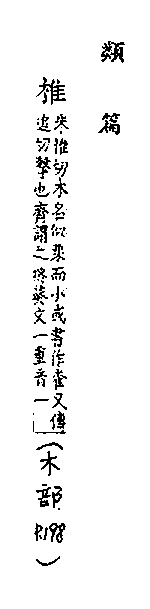 類篇
椎
朱惟切木名似栗而小或書作又傳
追切擊也齊謂之終葵文一重音一
(木部 P.198)